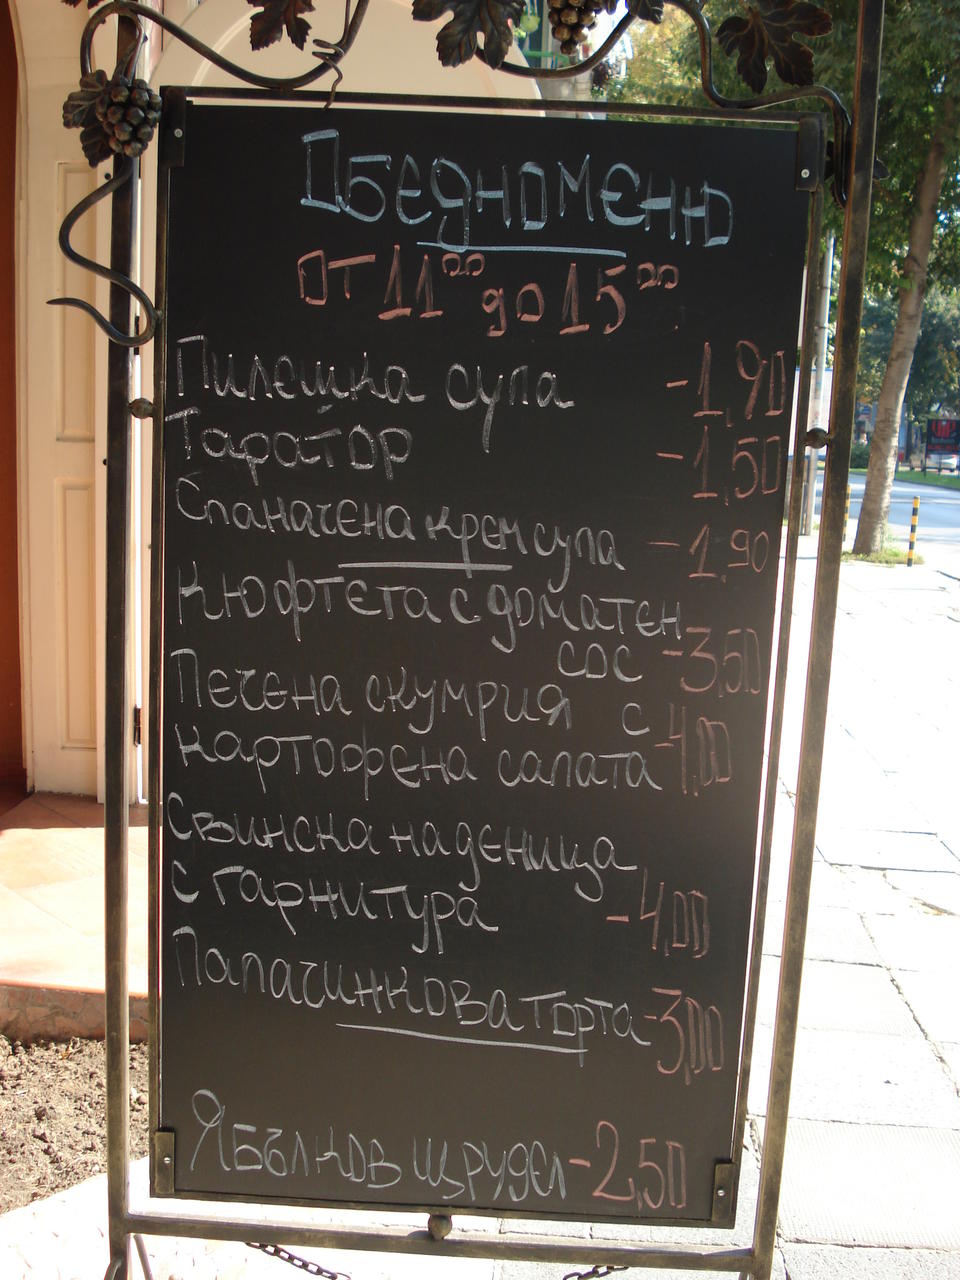 Обедно меню
от 11⁰⁰ до 15⁰⁰
Пилешка супа -1,90
Таратор -1,50
Спаначена крем супа -1,90
Кюфтета с доматен
сос -3,50
Печена скумрия с
картофена салата -4,00
Свинска наденица
с гарнитура -4,00
Палачинкова торта -3,00
Ябълков щрудел -2,50